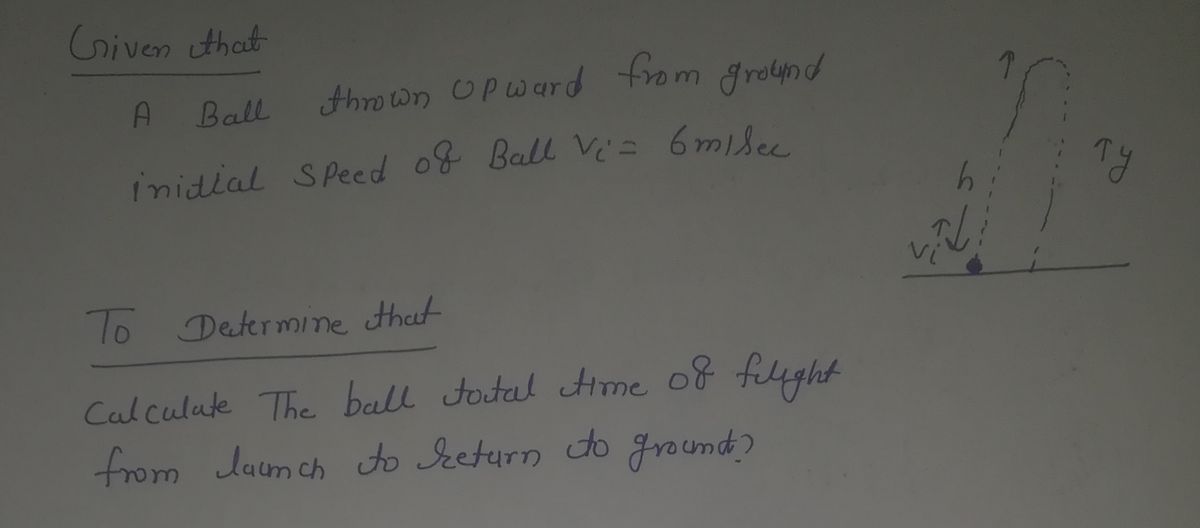 Given that
A Ball thrown upward from ground
inidial speed of Ball Vi = 6m/sec
h
Vi
y
To Determine that
Calculate The ball total time of flight
from launch to return to ground?